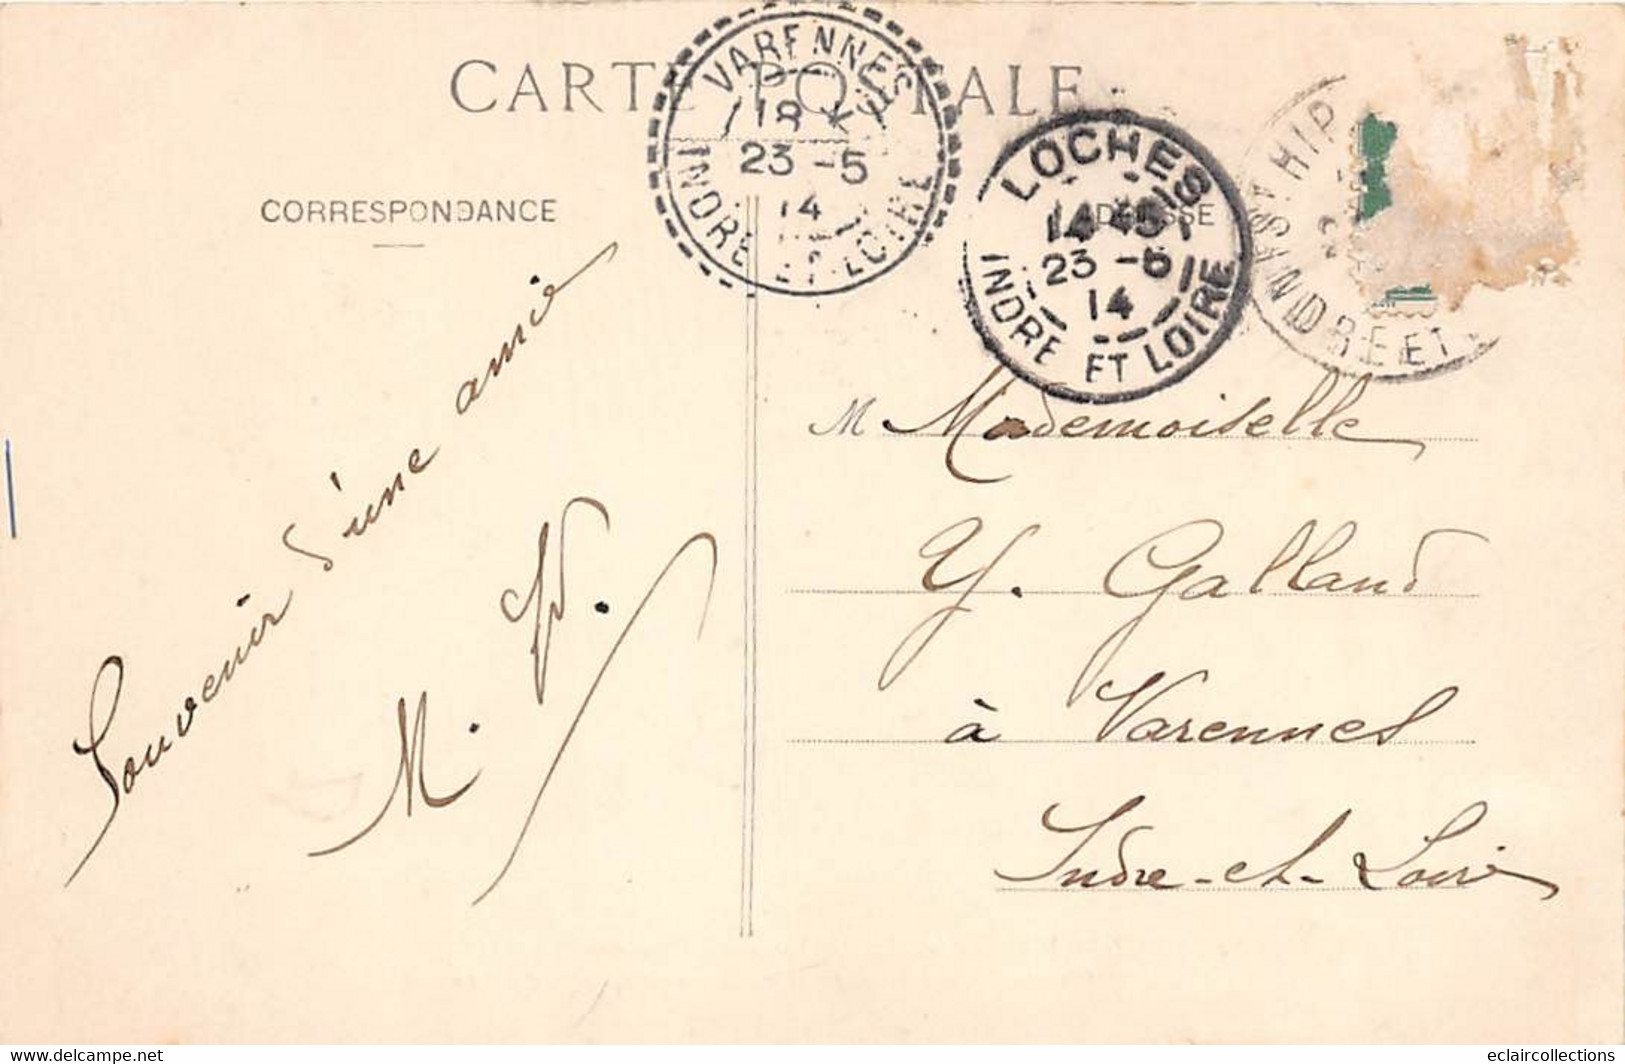 CARTE POSTALE
CORRESPONDANCE
ADRESSE
VARENNES
18
23 - 5
14
INDRE ET LOIRE
LOCHES
14 45
23 - 5
14
INDRE ET LOIRE
ST HIP
INDRE ET
Souvenir d'une amie
M
Mademoiselle
Y. Galland
à Varennes
Indre-et-Loire
eclaircollections
www.delcampe.net